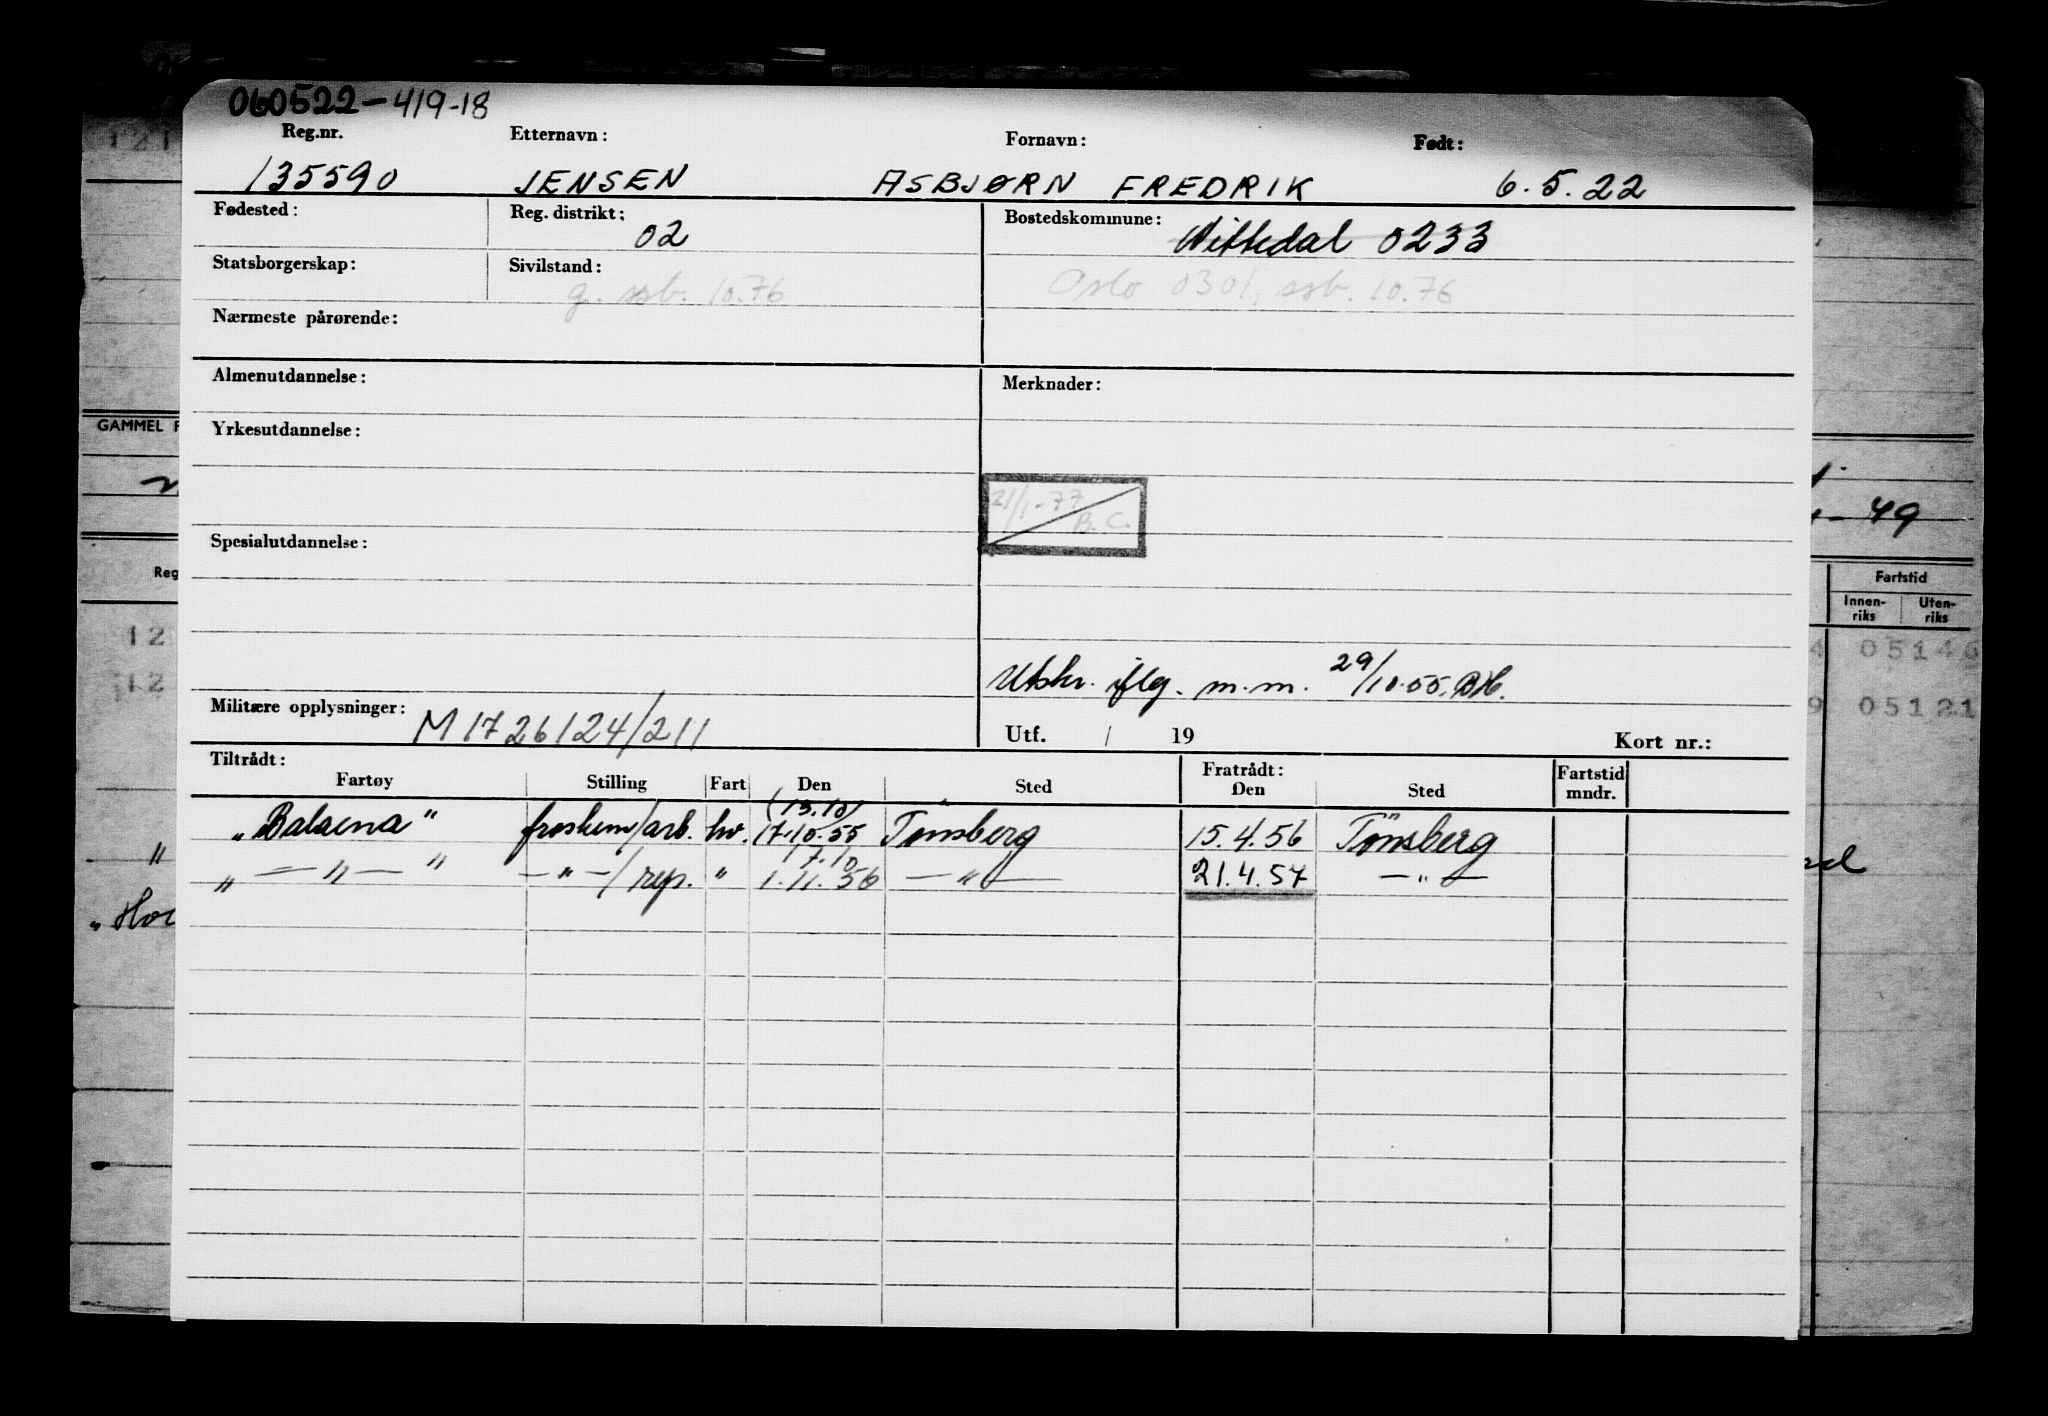 060522-419-18
Reg.nr. Etternavn: Fornavn: Født:
135590 JENSEN ASBJØRN FREDRIK 6.5.22
Fødested: Reg. distrikt: 02 Bostedskommune: Nittedal 0233
Statsborgerskap: Sivilstand: g. ssb. 10.76 Oslo 0301, ssb. 10.76
Nærmeste pårørende:
Almenutdannelse: Merknader:
GAMMEL F
Yrkesutdannelse:
21/1-77
B.C.
- 49
Spesialutdannelse:
Reg Fartstid
Innen-riks Uten-riks
12 4 05146
12 9 05121
Utskr. iflg. m.m. 29/10.55. BH.
Militære opplysninger: M1726124/211
Utf. / 19 Kort nr.:
Tiltrådt: Fratrådt:
Fartøy Stilling Fart Den Sted Den Sted Fartstid mndr.
(13.10)
"Balaena" frostem/arb. hv. 17.10.55 Tønsberg 15.4.56 Tønsberg
17.10
" — " — " — " — / rep. " 1.11.56 — " — 21.4.57 — " —
"